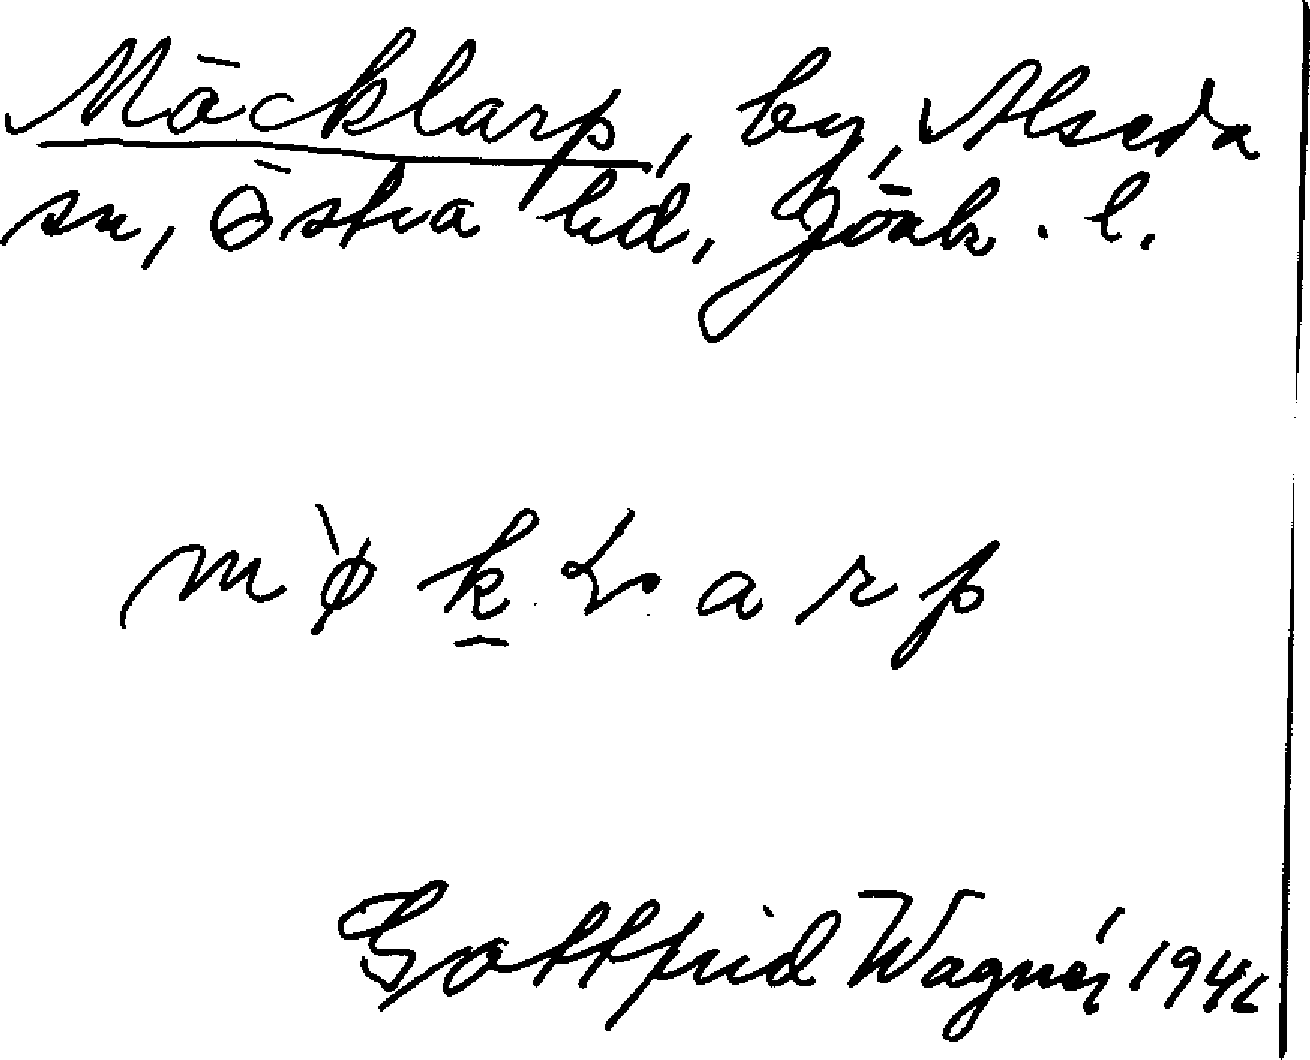 Möcklarp, by, Alseda
sn, Östra hd, Jönk. l.
Gottfrid Wagnér 1946